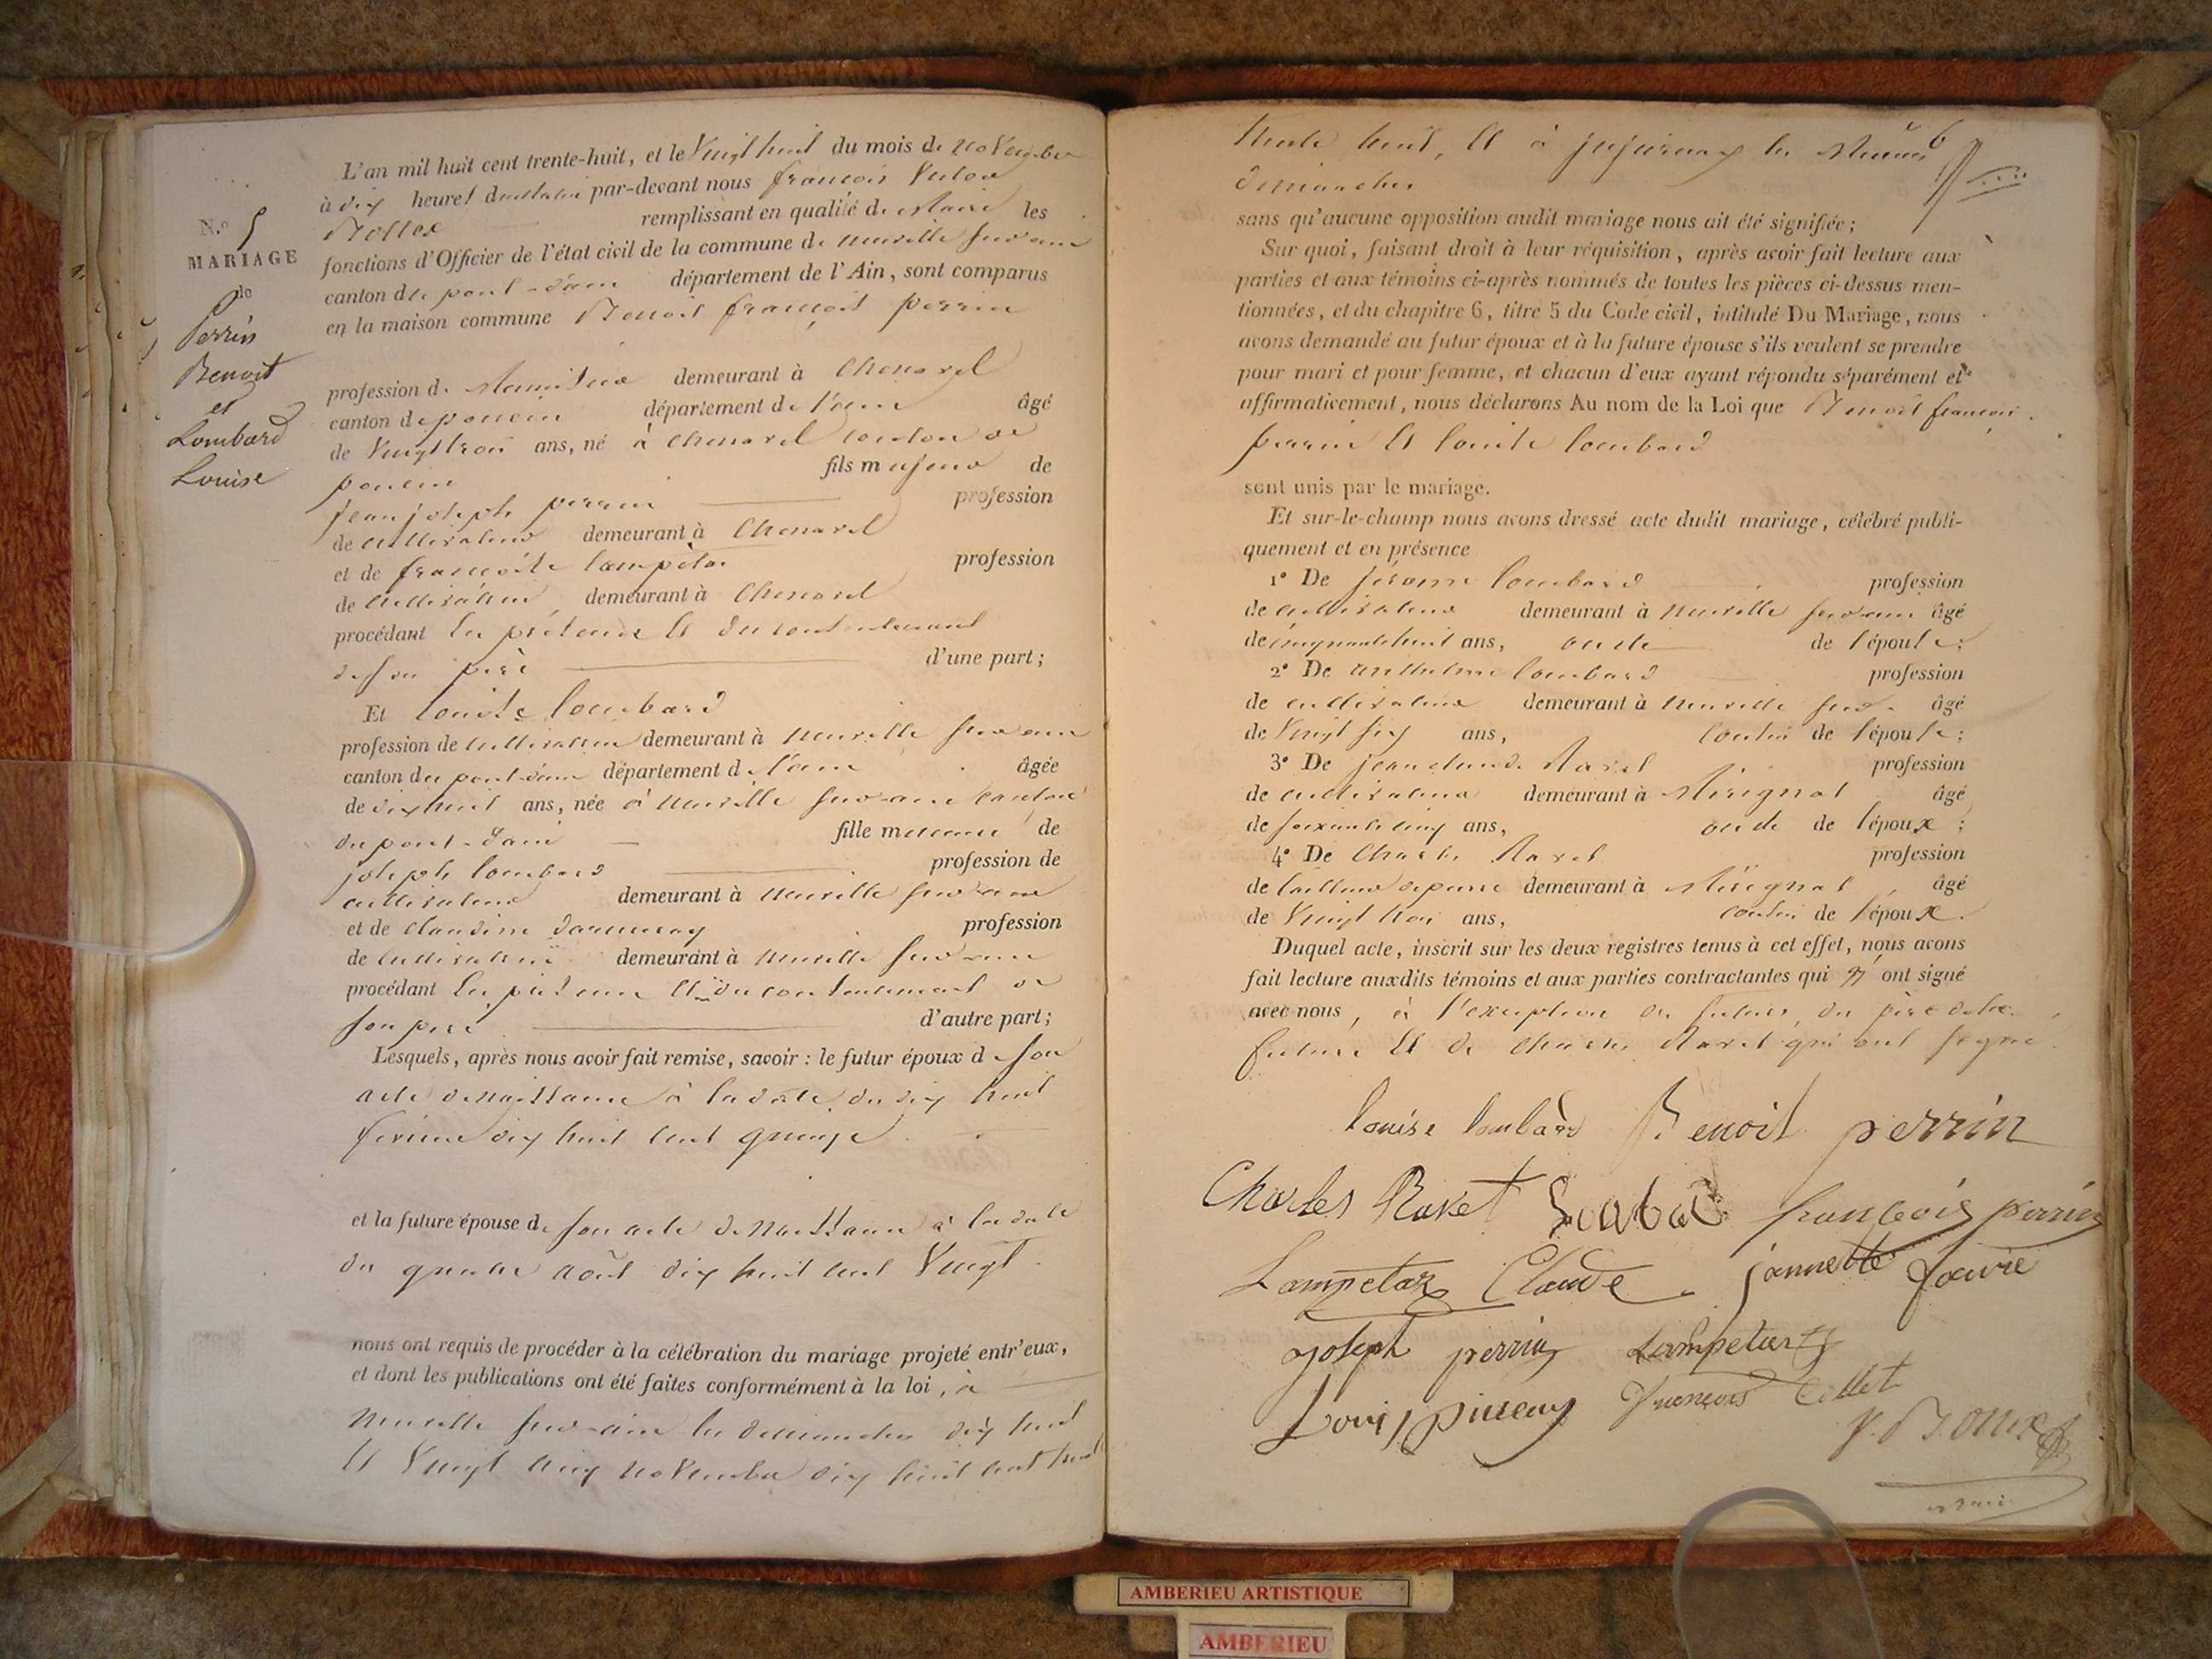 N.º 5
MARIAGE
de
Perrin
Benoit
et
Lombard
Louise
L'an mil huit cent trente-huit, et le Vingt huit du mois de novembre
à dix heures du matin par-devant nous françois Victor
remplissant en qualité de Maire les
fonctions d'Officier de l'état civil de la commune de neuville sur ain
canton de pont-d'ain département de l'Ain, sont comparus
en la maison commune Benoit françois perrin
profession de demeurant à Chenavel
canton de poncin département de l'ain âgé
de Vingt trois ans, né à Chenavel canton de
poncin fils majeur de
jean joseph perrin profession
de cultivateur demeurant à Chenavel
et de françoise lampetaz profession
de cultivatrice demeurant à Chenavel
procédant du consentement
de son père d'une part;
Et louise lombard
profession de cultivatrice demeurant à neuville sur ain
canton du pont-d'ain département de l'ain âgée
de dix huit ans, née à neuville sur ain canton
du pont-d'ain fille mineure de
joseph lombard profession de
cultivateur demeurant à neuville sur ain
et de claudine profession
de cultivatrice demeurant à neuville sur ain
procédant et du consentement de
son père d'autre part;
Lesquels, après nous avoir fait remise, savoir : le futur époux de son
acte de naissance à la date du dix huit
février dix huit cent quinze
et la future épouse de son acte de naissance à la date
du quatre août dix huit cent Vingt
nous ont requis de procéder à la célébration du mariage projeté entr'eux,
et dont les publications ont été faites conformément à la loi, à
neuville sur-ain les dimanches dix huit
et Vingt cinq novembre dix huit cent trente
trente huit, et à jujurieux les mêmes
dimanches
sans qu'aucune opposition audit mariage nous ait été signifiée;
Sur quoi, faisant droit à leur réquisition, après avoir fait lecture aux
parties et aux témoins ci-après nommés de toutes les pièces ci-dessus men-
tionnées, et du chapitre 6, titre 5 du Code civil, intitulé Du Mariage, nous
avons demandé au futur époux et à la future épouse s'ils veulent se prendre
pour mari et pour femme, et chacun d'eux ayant répondu séparément et
affirmativement, nous déclarons Au nom de la Loi que Benoit françois
perrin et louise lombard
sont unis par le mariage.
Et sur-le-champ nous avons dressé acte dudit mariage, célébré publi-
quement et en présence
1º De jérome lombard profession
de cultivateur demeurant à neuville sur ain âgé
de cinquante huit ans, oncle de l'épouse;
2º De anthelme lombard profession
de cultivateur demeurant à neuville sur- âgé
de Vingt six ans, cousin de l'épouse;
3º De jean claude Ravet profession
de cultivateur demeurant à Mérignat âgé
de soixante cinq ans, oncle de l'époux;
4º De Charles Ravet profession
de tailleur de pierre demeurant à Mérignat, âgé
de Vingt trois ans, cousin de l'époux.
Duquel acte, inscrit sur les deux registres tenus à cet effet, nous avons
fait lecture auxdits témoins et aux parties contractantes qui n'ont signé
avec nous, à l'exception des futurs, du père de la
future et de Charles Ravet qui ont signé.
louise lombard Benoit perrin
Charles Ravet françois perrin
Lampetaz Claude jannette favre
joseph perrin Lampetaz
Louis françois Collet
AMBERIEU ARTISTIQUE
AMBERIEU